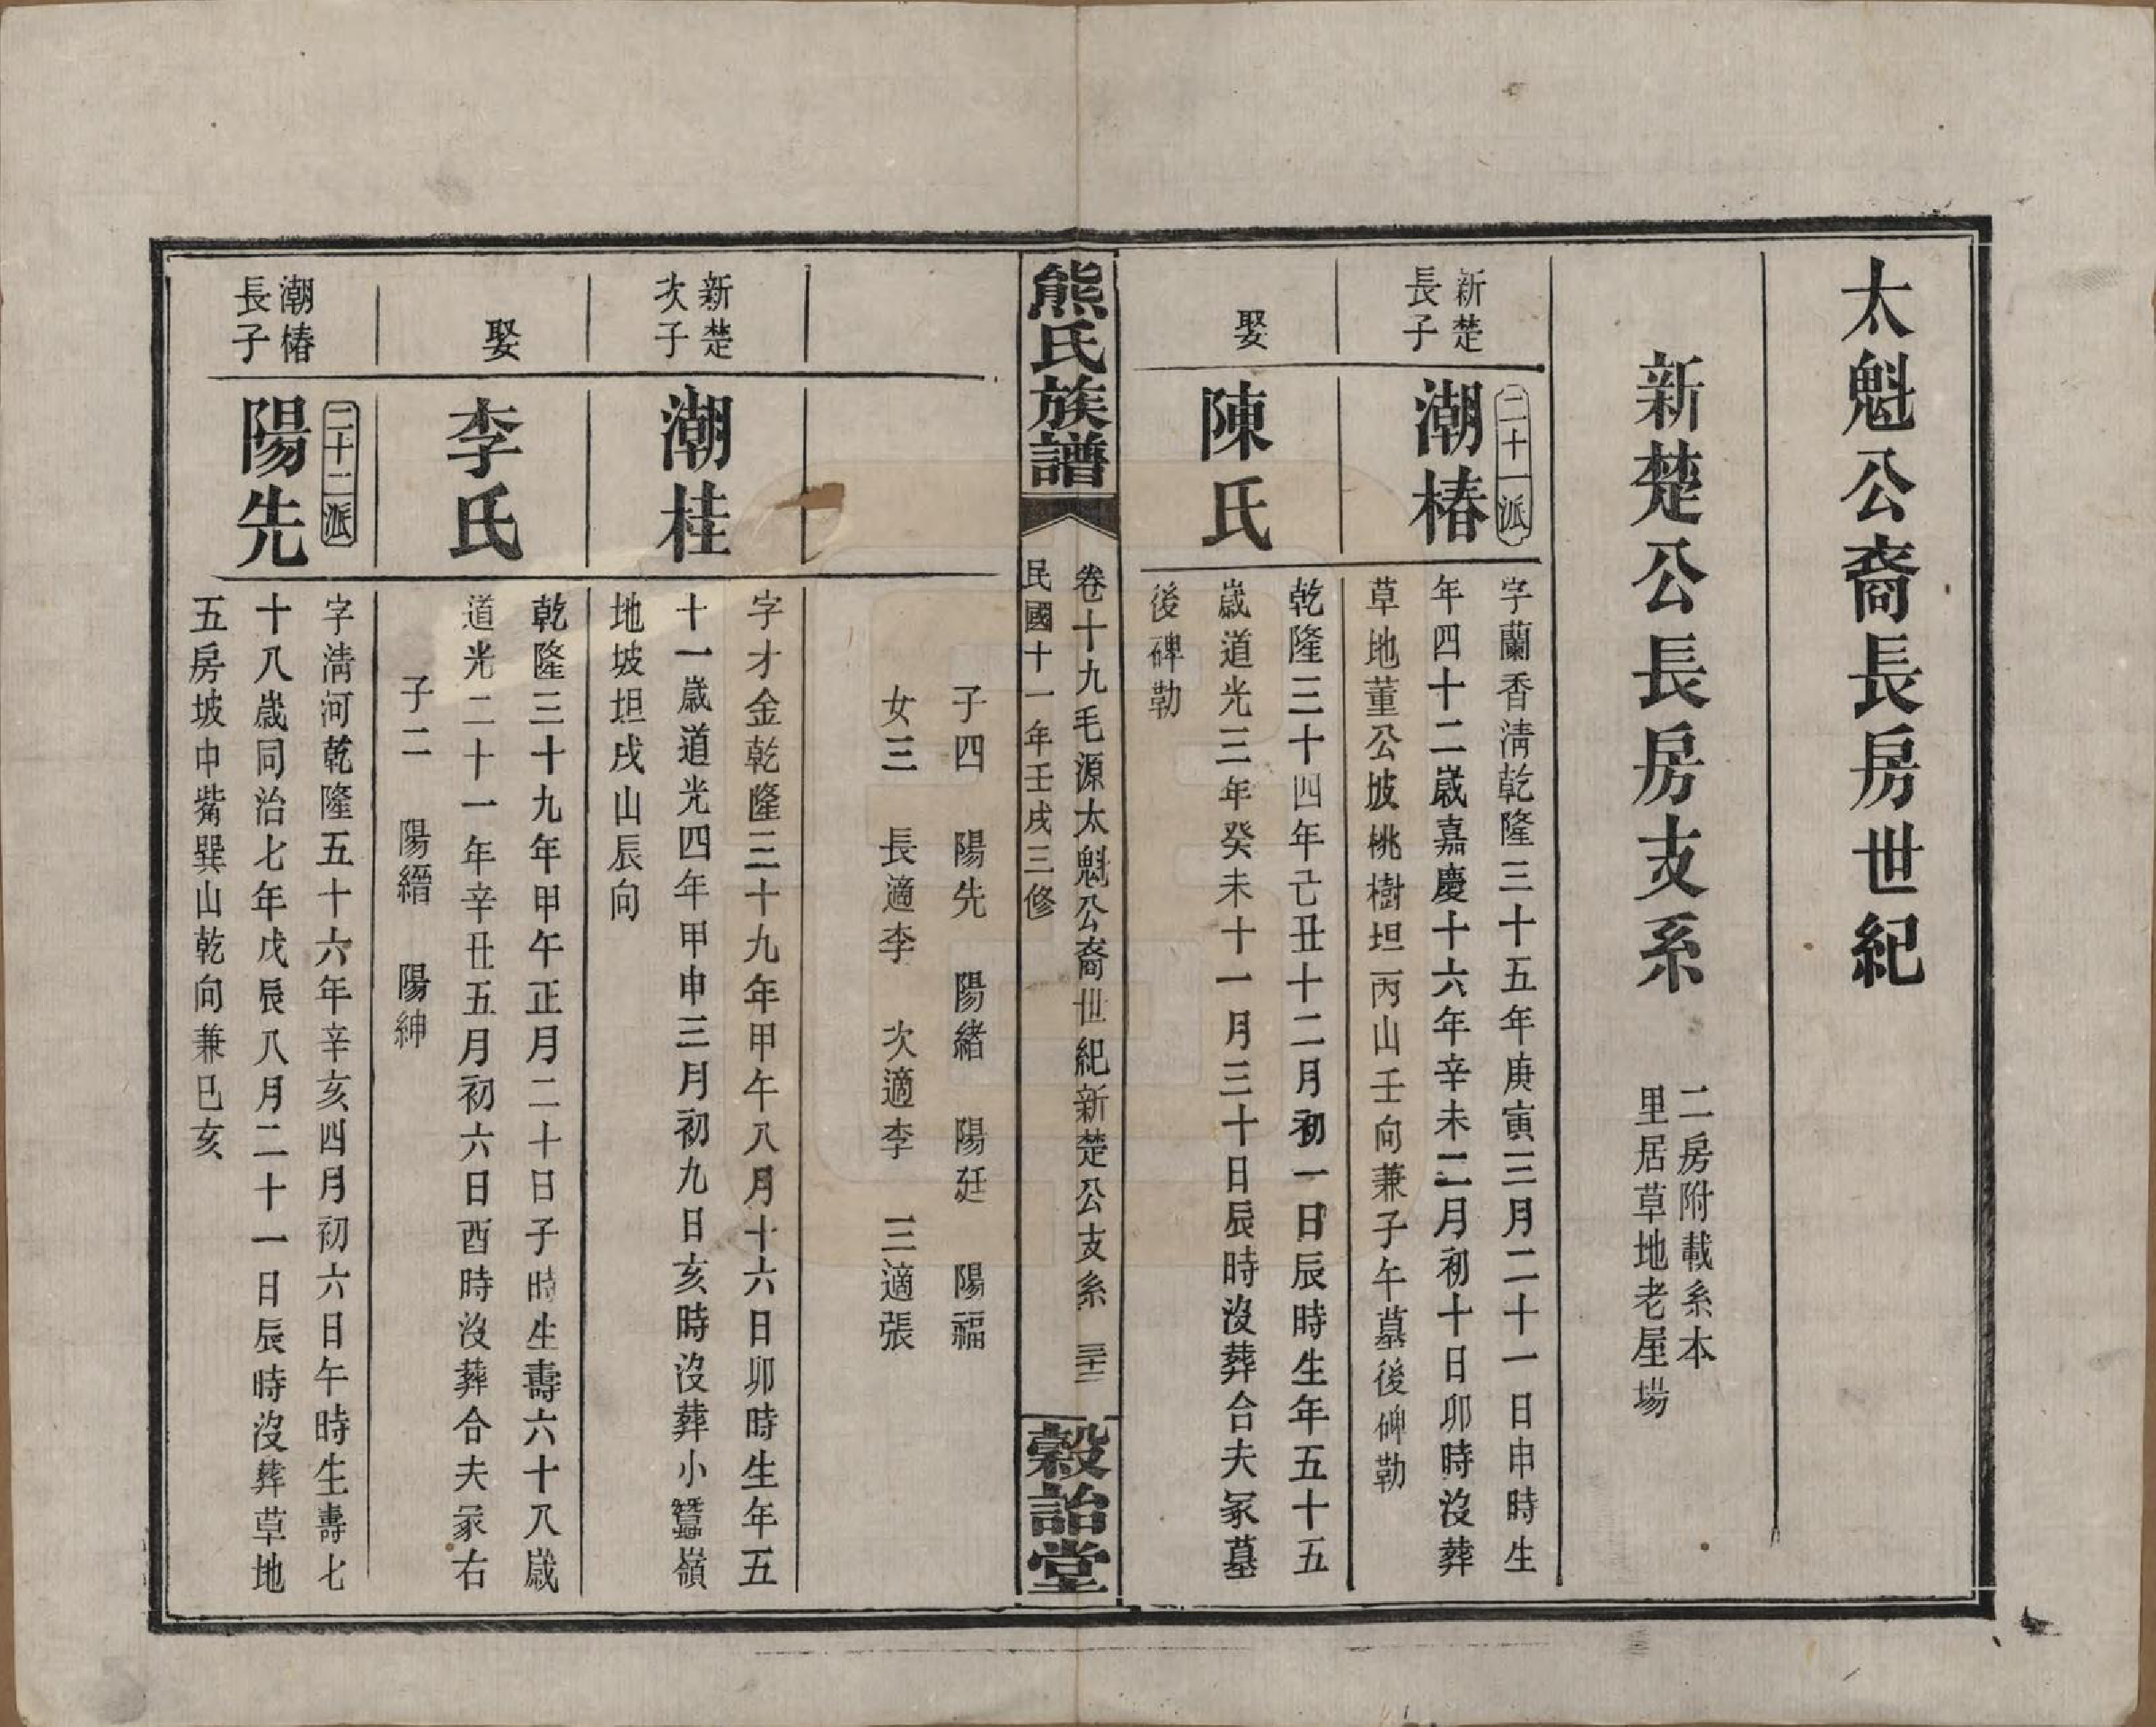 太魁公裔長房世紀
新楚公長房支系
二房附載系本
里居草地老屋場
新楚
長子
二十一派
潮椿
字蘭香清乾隆三十五年庚寅三月二十一日申時生
年四十二歲嘉慶十六年辛未二月初十日卯時沒葬
草地董公坡桃樹坦丙山壬向兼子午墓後碑勒
娶
陳氏
乾隆三十四年己丑十二月初一日辰時生年五十五
歲道光三年癸未十一月三十日辰時沒葬合夫冢墓
後碑勒
熊氏族譜
卷十九毛源太魁公裔世紀新楚公支系 三十三
民國十一年壬戌三修
榖詒堂
子四 陽先 陽緒 陽廷 陽福
女三 長適李 次適李 三適張
新楚
次子
潮桂
字才金乾隆三十九年甲午八月十六日卯時生年五
十一歲道光四年甲申三月初九日亥時沒葬小蠶嶺
地坡坦戌山辰向
娶
李氏
乾隆三十九年甲午正月二十日子時生壽六十八歲
道光二十一年辛丑五月初六日酉時沒葬合夫冢右
子二 陽縉 陽紳
潮椿
長子
二十二派
陽先
字清河乾隆五十六年辛亥四月初六日午時生壽七
十八歲同治七年戊辰八月二十一日辰時沒葬草地
五房坡中觜巽山乾向兼巳亥